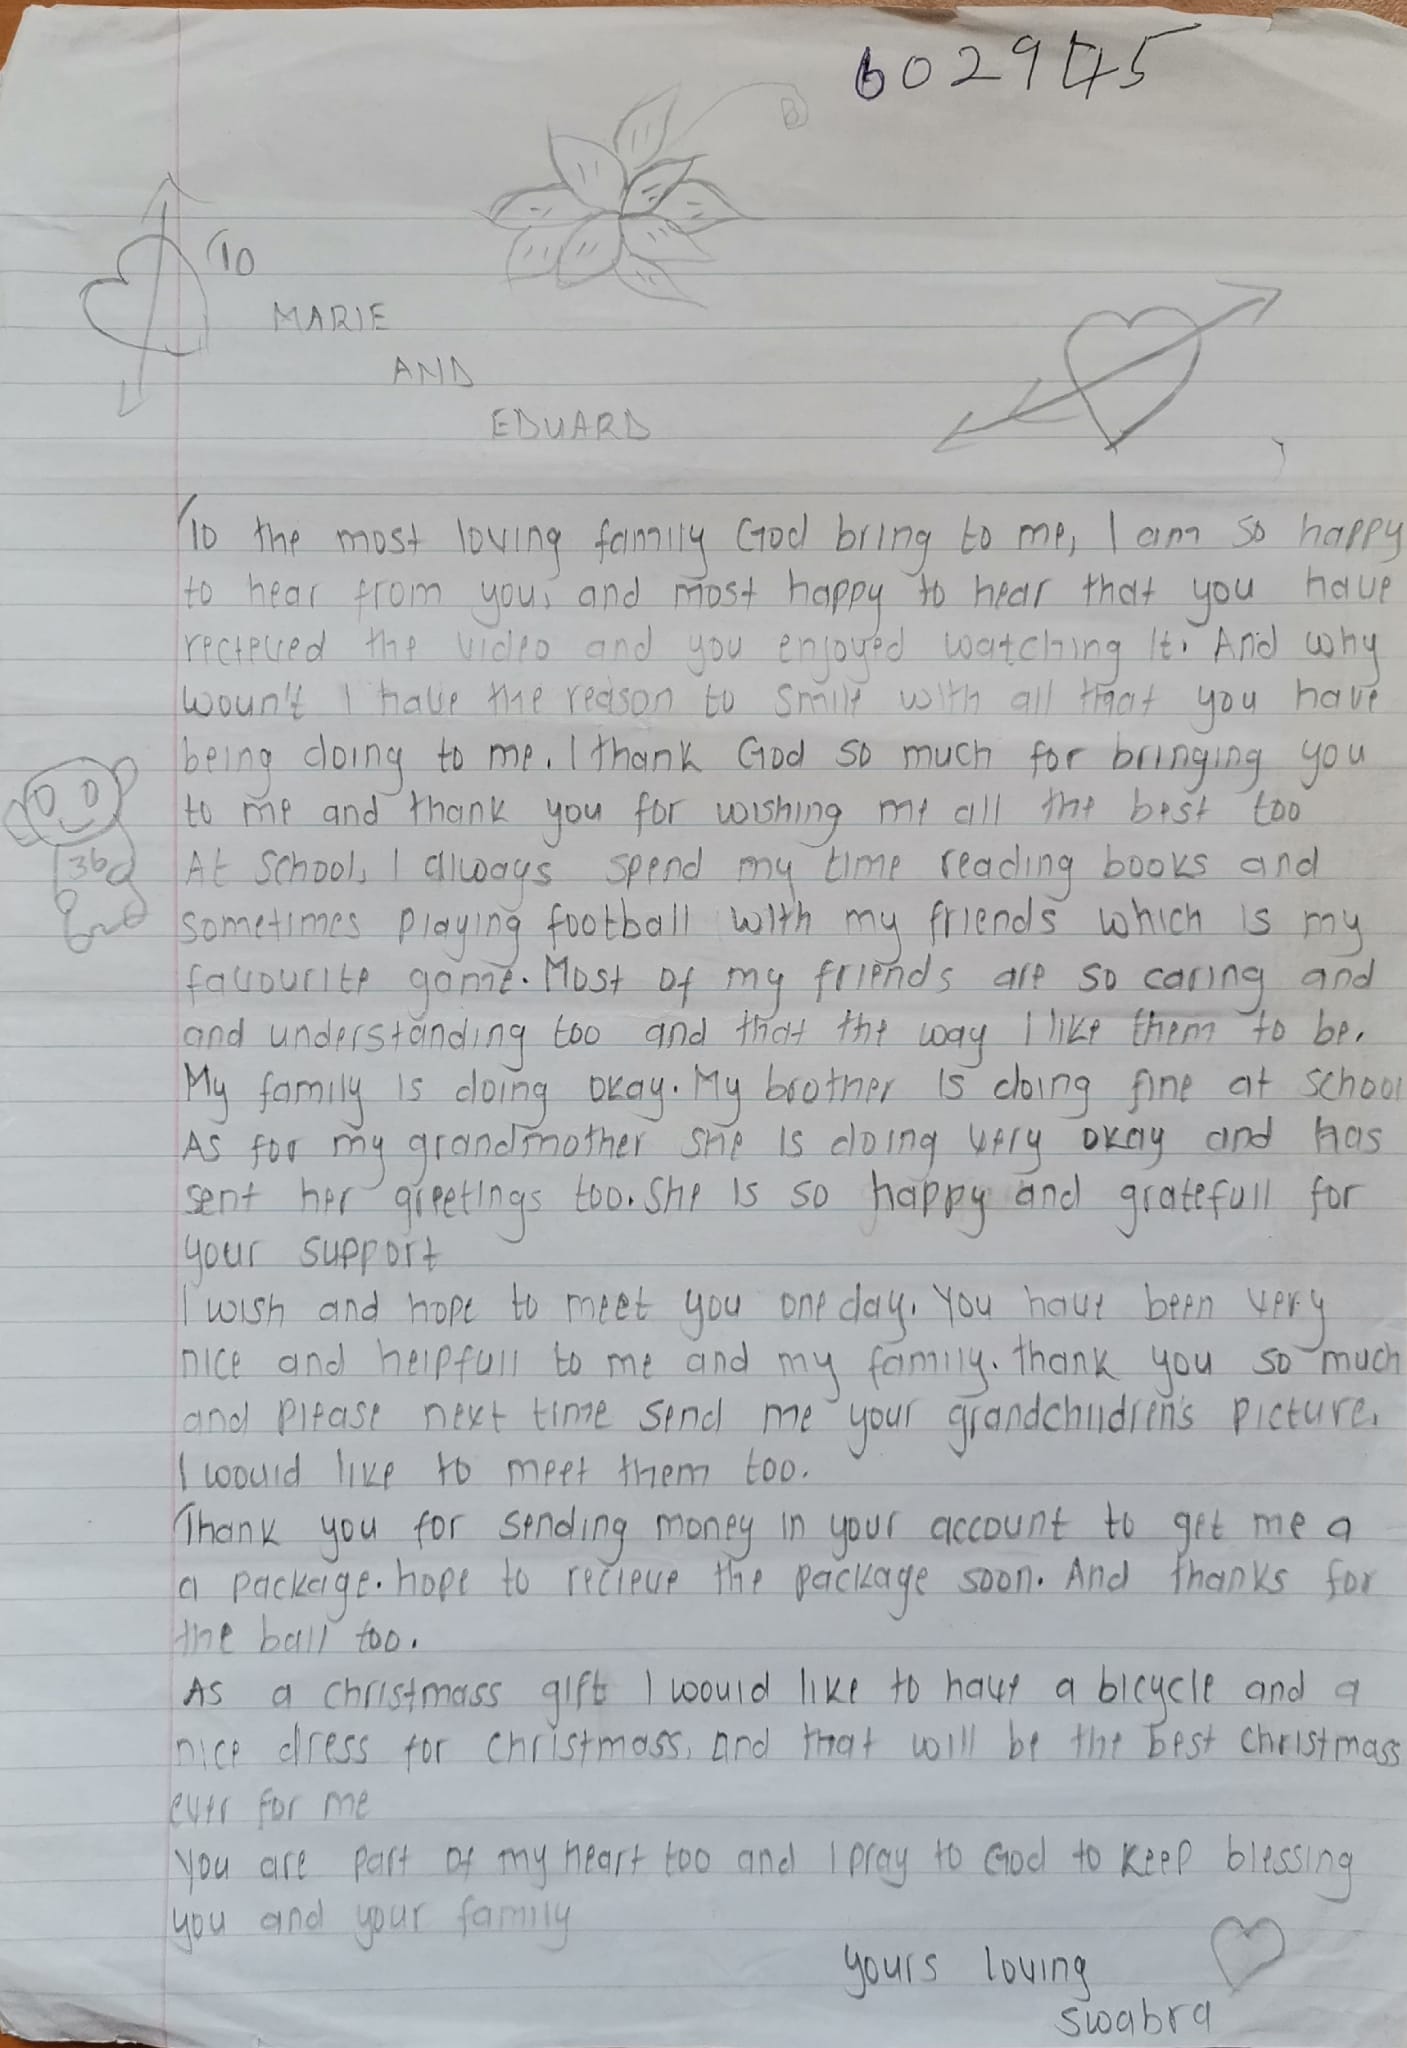 602945
To
MARIE
AND
EDUARD
To the most loving family God bring to me, I am so happy
to hear from you, and most happy to hear that you have
recieved the video and you enjoyed watching it. And why
woun't I have the reason to smile with all that you have
being doing to me. I thank God so much for bringing you
to me and thank you for wishing me all the best too
At school, I always spend my time reading books and
sometimes playing football with my friends which is my
favourite game. Most of my friends are so caring and
and understanding too and that the way I like them to be.
My family is doing okay. My brother is doing fine at school
As for my grandmother she is doing very okay and has
sent her greetings too. She is so happy and gratefull for
your support
I wish and hope to meet you one day. You have been very
nice and helpfull to me and my family. thank you so much
and please next time send me your grandchildren's picture.
I would like to meet them too.
Thank you for sending money in your account to get me a
a package. hope to recieve the package soon. And thanks for
the ball too.
As a christmass gift I would like to have a bicycle and a
nice dress for christmass, and that will be the best christmass
ever for me
You are part of my heart too and I pray to God to keep blessing
you and your family
yours loving
swabra